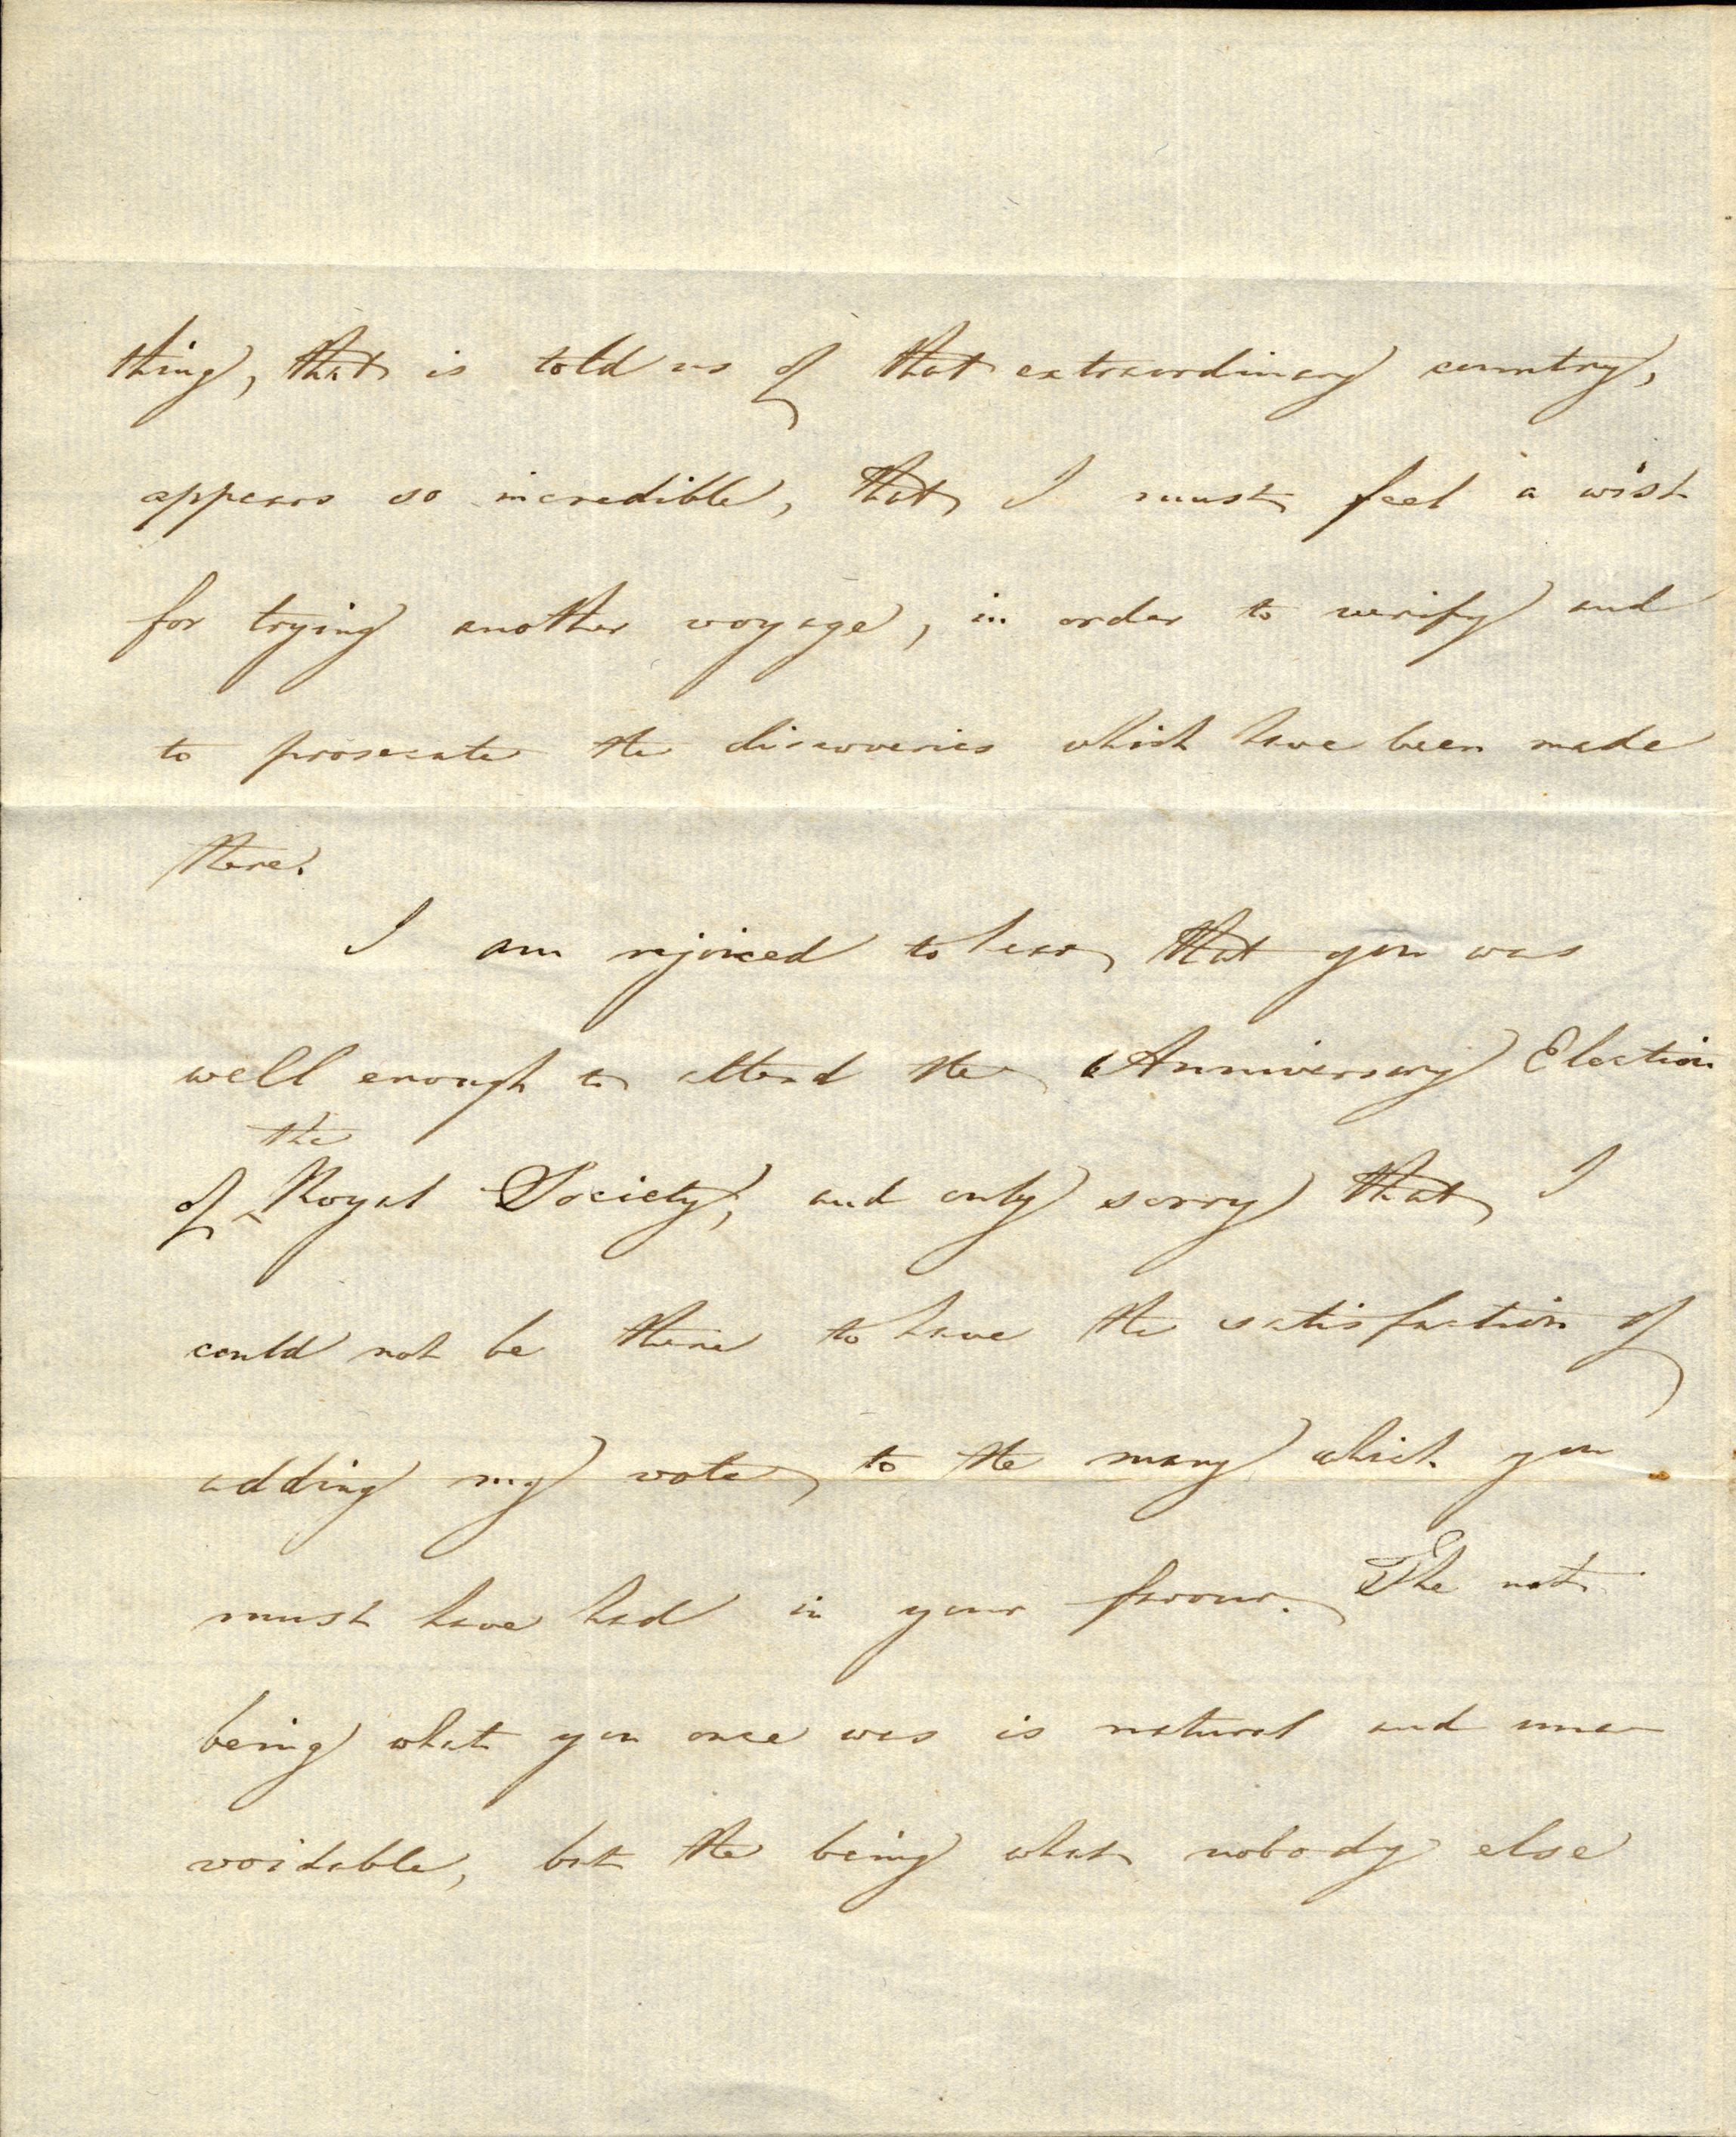 thing, that is told us of that extraordinary country,
appears so incredible, that I must feel a wish
for trying another voyage, in order to verify and
to prosecute the discoveries which have been made
there.
I am rejoiced to hear that you was
well enough to attend the Anniversary Election
the
of ^ Royal Society, and only sorry that I
could not be there to have the satisfaction of
adding my vote to the many which you
must have had in your favour. The not
being what you once was is natural and una-
voidable, but the being what nobody else